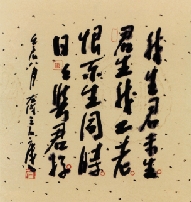 我生君未生
君生我已老
恨不生同時
日日與君好